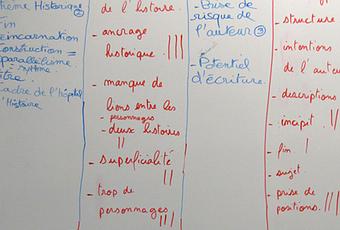 Thème Historique
Fin
Réincarnation
Construction =
parallélisme.
- rythme.
titre.
Cadre de l'hôpital
Histoire
de l'histoire.
- ancrage
historique. |||
- manque de
liens entre les
- personnages
- deux histoires
||
- superficialité
||
- trop de
personnages
|||
- Prise de
risque de
l'auteur ③
- Potentiel
d'écriture.
- structure
- intentions
de l'auteu
- descriptions
- incipit. ||
- fin |
- sujet
- prise de
positions. |||